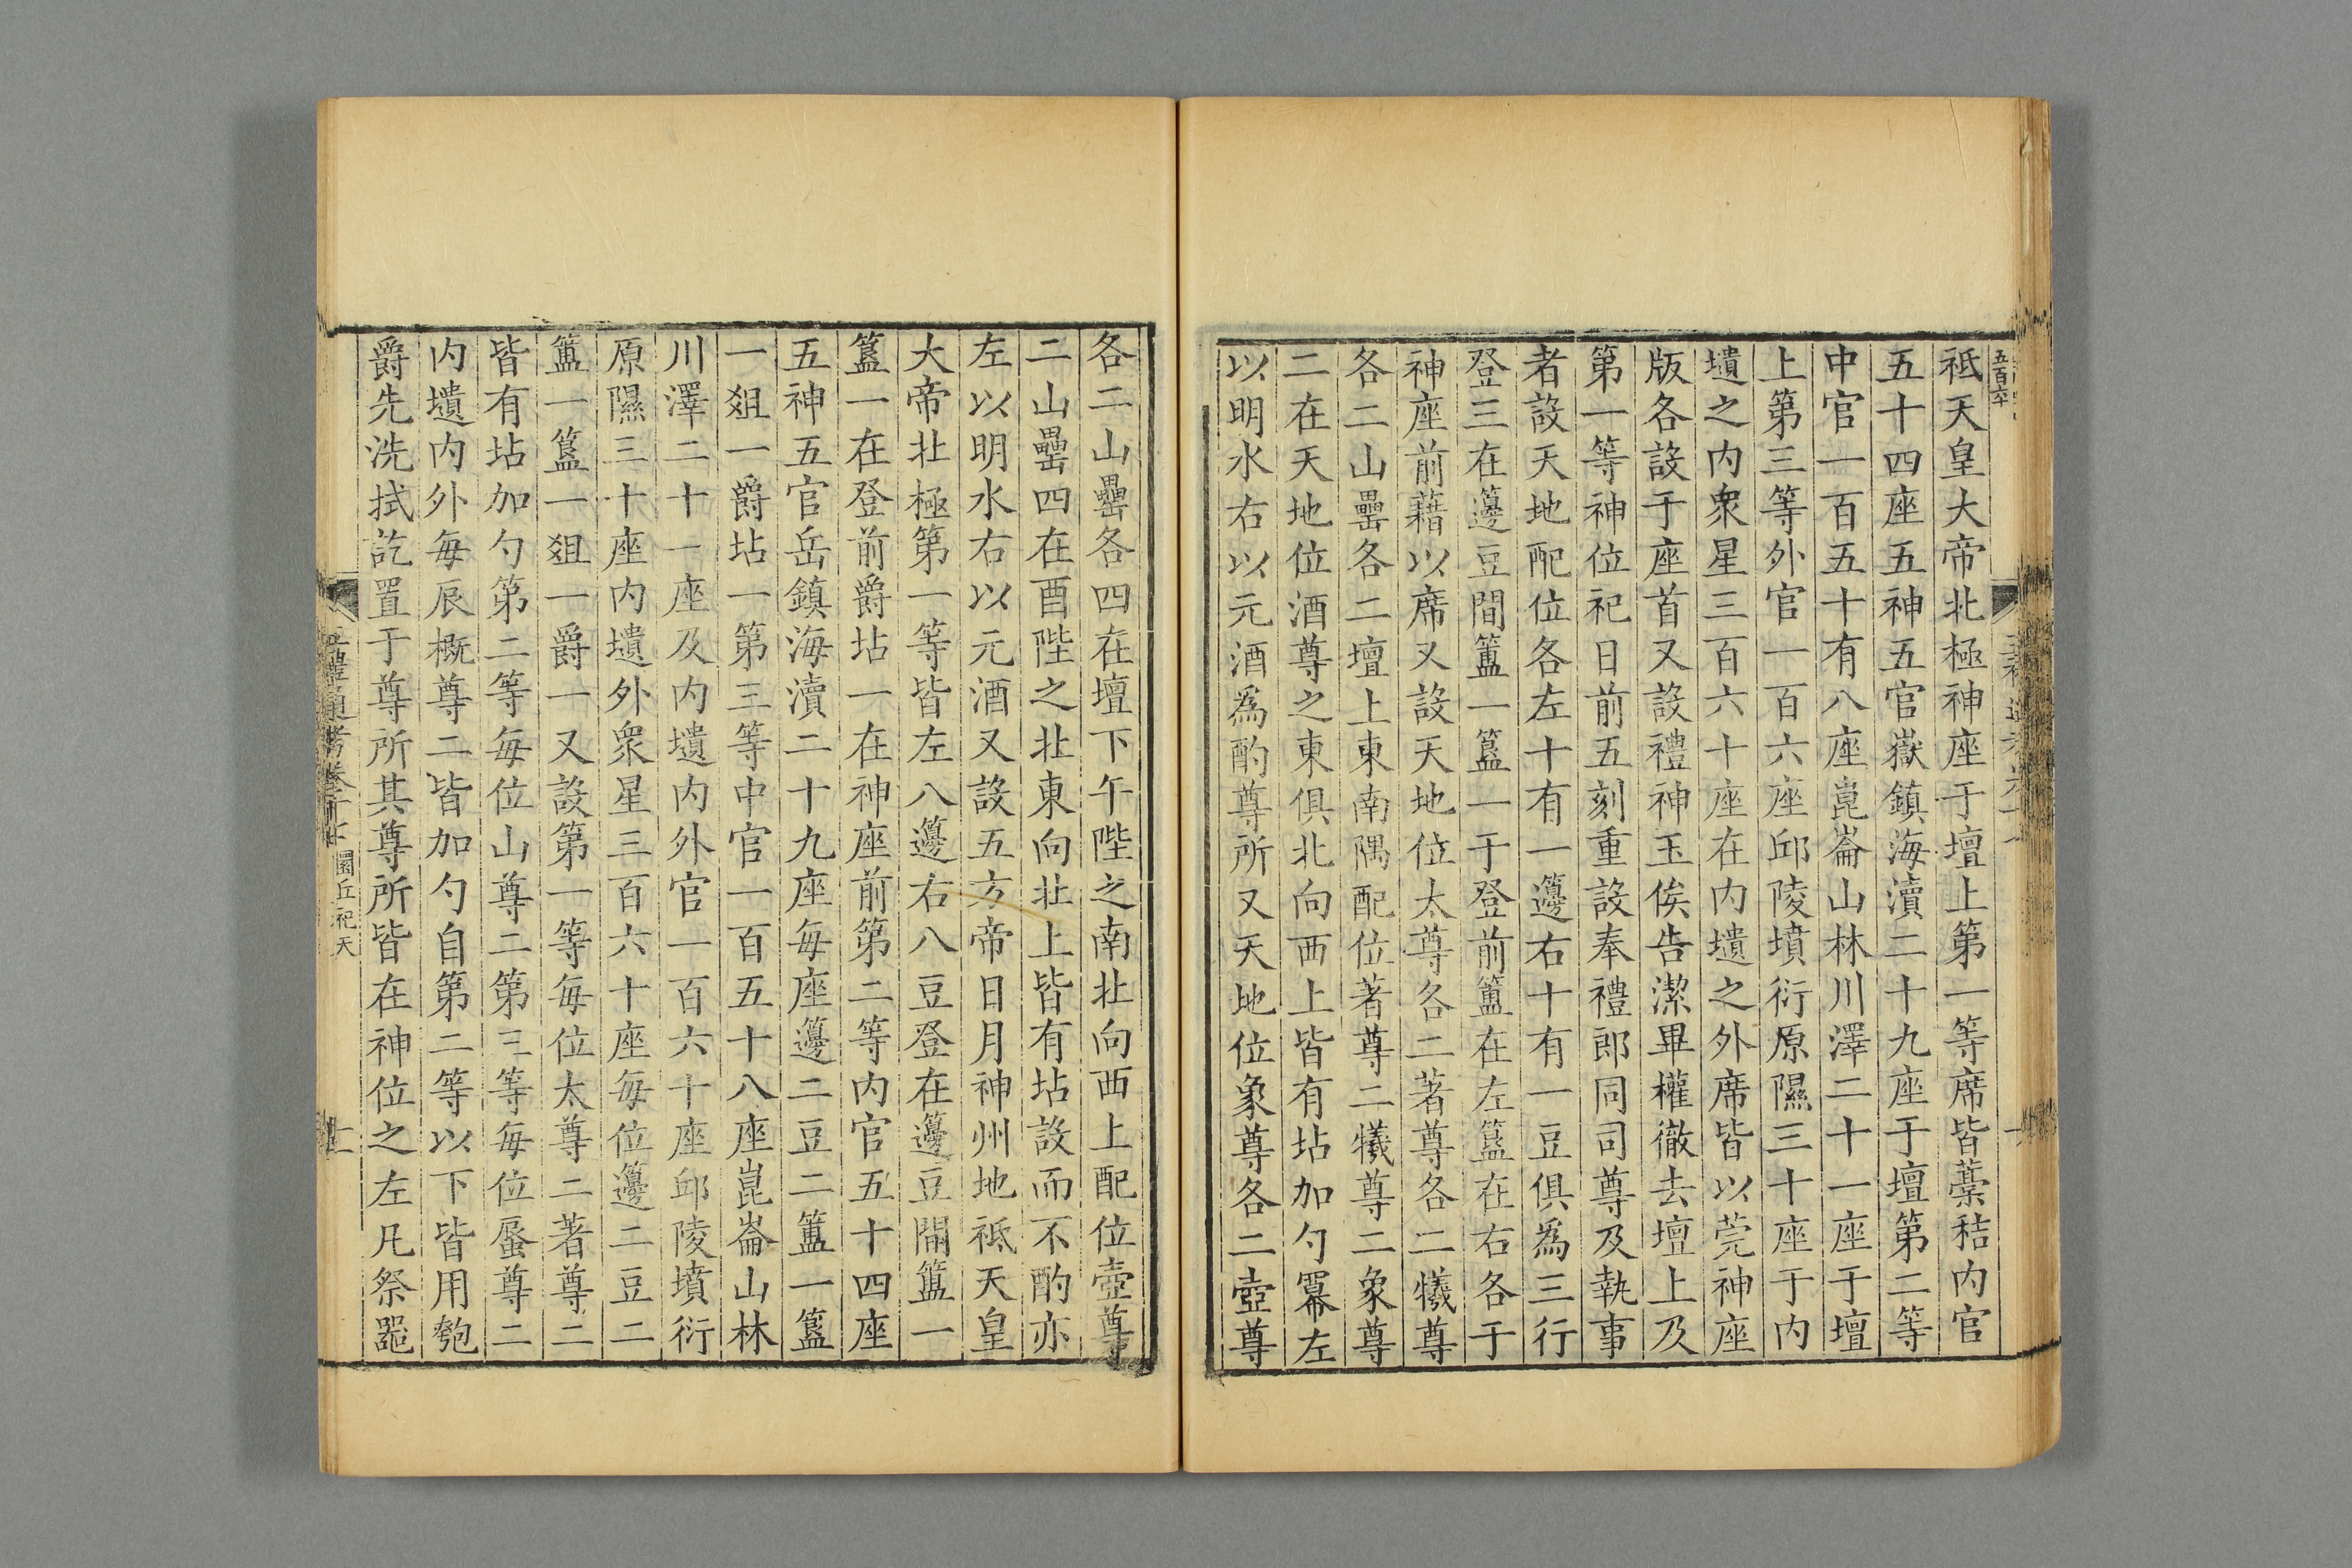 祗天皇大帝北極神座于壇上第一等席皆藁秸内官
五十四座五神五官嶽鎮海瀆二十九座于壇第二等
中官一百五十有八座崑崙山林川澤二十一座于壇
上第三等外官一百六座邱陵墳衍原隰三十座于内
壝之内衆星三百六十座在内壝之外席皆以莞神座
版各設于座首又設禮神玉俟告潔畢權徹去壇上及
第一等神位祀日前五刻重設奉禮郎同司尊及執事
者設天地配位各左十有一籩右十有一豆俱為三行
登三在籩豆間簠一簋一于登前簠在左簋在右各于
神座前藉以席又設天地位太尊各二著尊各二犧尊
各二山罍各二壇上東南隅配位著尊二犧尊二象尊
二在天地位酒尊之東俱北向西上皆有坫加勺冪左
以明水右以元酒為酌尊所又天地位象尊各二壺尊
各二山罍各四在壇下午陛之南北向西上配位壺尊
二山罍四在酉陛之北東向北上皆有坫設而不酌亦
左以明水右以元酒又設五方帝日月神州地祗天皇
大帝北極第一等皆左八籩右八豆登在籩豆間簠一
簋一在登前爵坫一在神座前第二等内官五十四座
五神五官岳鎮海瀆二十九座每座籩二豆二簠一簋
一俎一爵坫一第三等中官一百五十八座崑崙山林
川澤二十一座及内壝内外官一百六十座邱陵墳衍
原隰三十座内壝外衆星三百六十座每位籩二豆二
簠一簋一俎一爵一又設第一等每位太尊二著尊二
皆有坫加勺第二等每位山尊二第三等每位蜃尊二
内壝内外每辰概尊二皆加勺自第二等以下皆用匏
爵先洗拭訖置于尊所其尊所皆在神位之左凡祭器
圜丘祀天